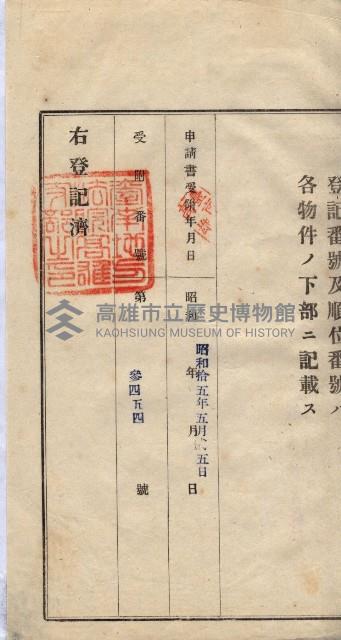 登記番號及順位番號ハ
各物件ノ下部ニ記載ス
申請書受附年月日
昭和 年 月 日
昭和拾五年五月 五日
受附番號
第 號
參四五四
右登記濟
高雄市立歷史博物館
KAOHSIUNG MUSEUM OF HISTORY